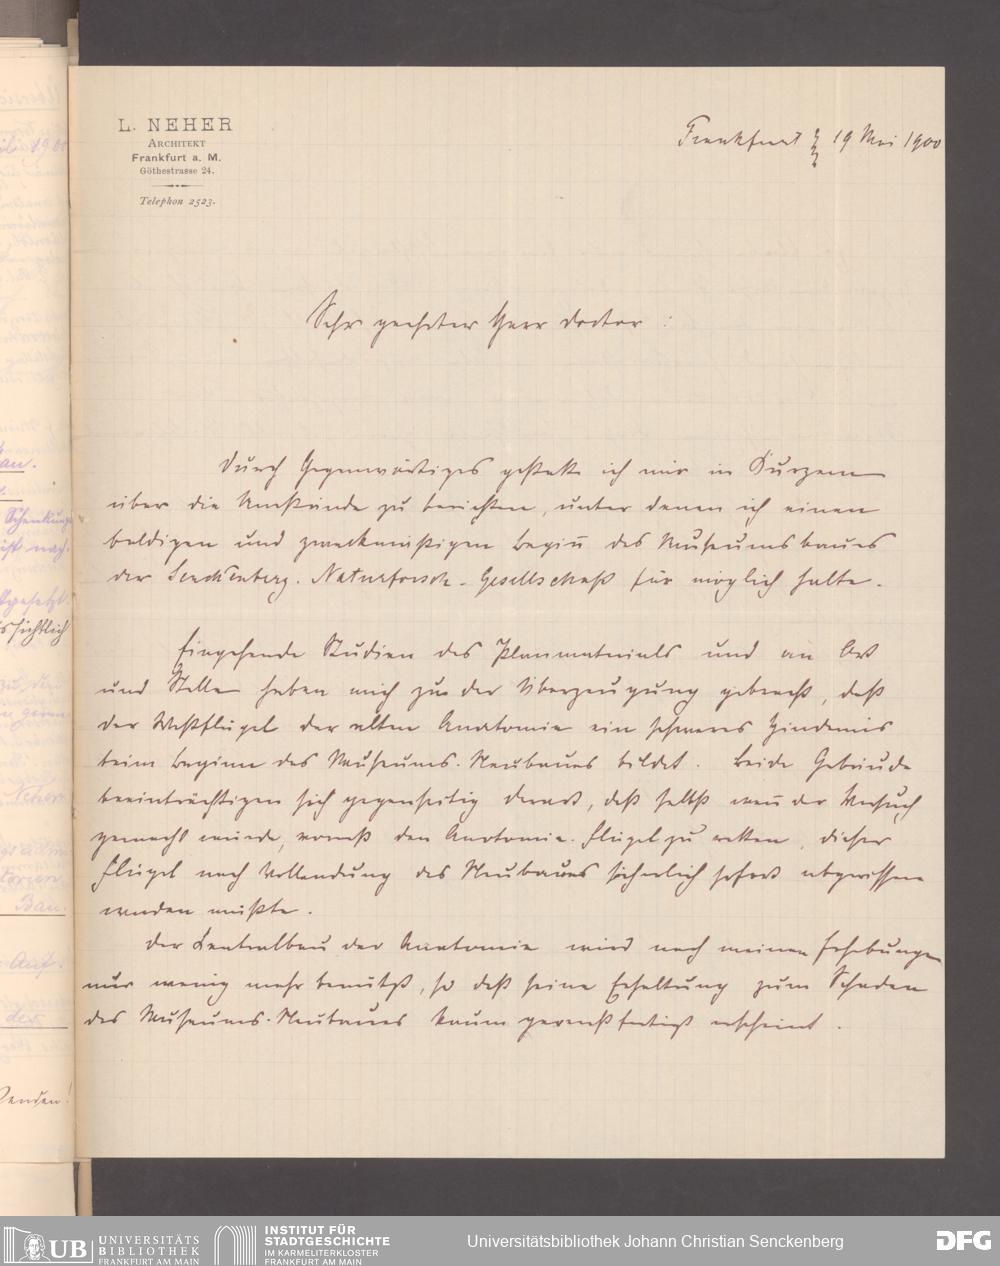 L. NEHER
ARCHITEKT
Frankfurt a. M.
Göthestrasse 24.
Telephon 2523.
Frankfurt 19 Mai 1900
Sehr geehrter Herr Doctor :
Durch Gegenwärtiges gestatte ich mir in Kurzem
über die Umstände zu berichten, unter denen ich einen
baldigen und zweckmäßigen Begin̄ des Museumsbaues
der Senckenberg. Naturforsch. Gesellschaft für möglich halte.
Eingehende Studien des Planmaterials und an Ort
und Stelle haben mich zu der Überzeugung gebracht, daß
der Westflügel der alten Anatomie ein schweres Hindernis
beim Beginne des Museums-Neubaues bildet. Beide Gebäude
beeinträchtigen sich gegenseitig derart, daß selbst wen̄ der Versuch
gemacht würde, vorerst den Anatomie-Flügel zu retten, dieser
Flügel nach Vollendung des Neubaues sicherlich sofort abgerissen
werden müßte.
Der Centralbau der Anatomie wird nach meinen Erhebungen
nur wenig mehr benutzt, so daß seine Erhaltung zum Schaden
des Museums-Neubaues kaum gerechtfertigt erscheint.
an.
Schenkung
ist nach
Neher
Bau.
Auf
der
UB UNIVERSITÄTS
BIBLIOTHEK
FRANKFURT AM MAIN
INSTITUT FÜR
STADTGESCHICHTE
IM KARMELITERKLOSTER
FRANKFURT AM MAIN
Universitätsbibliothek Johann Christian Senckenberg
DFG